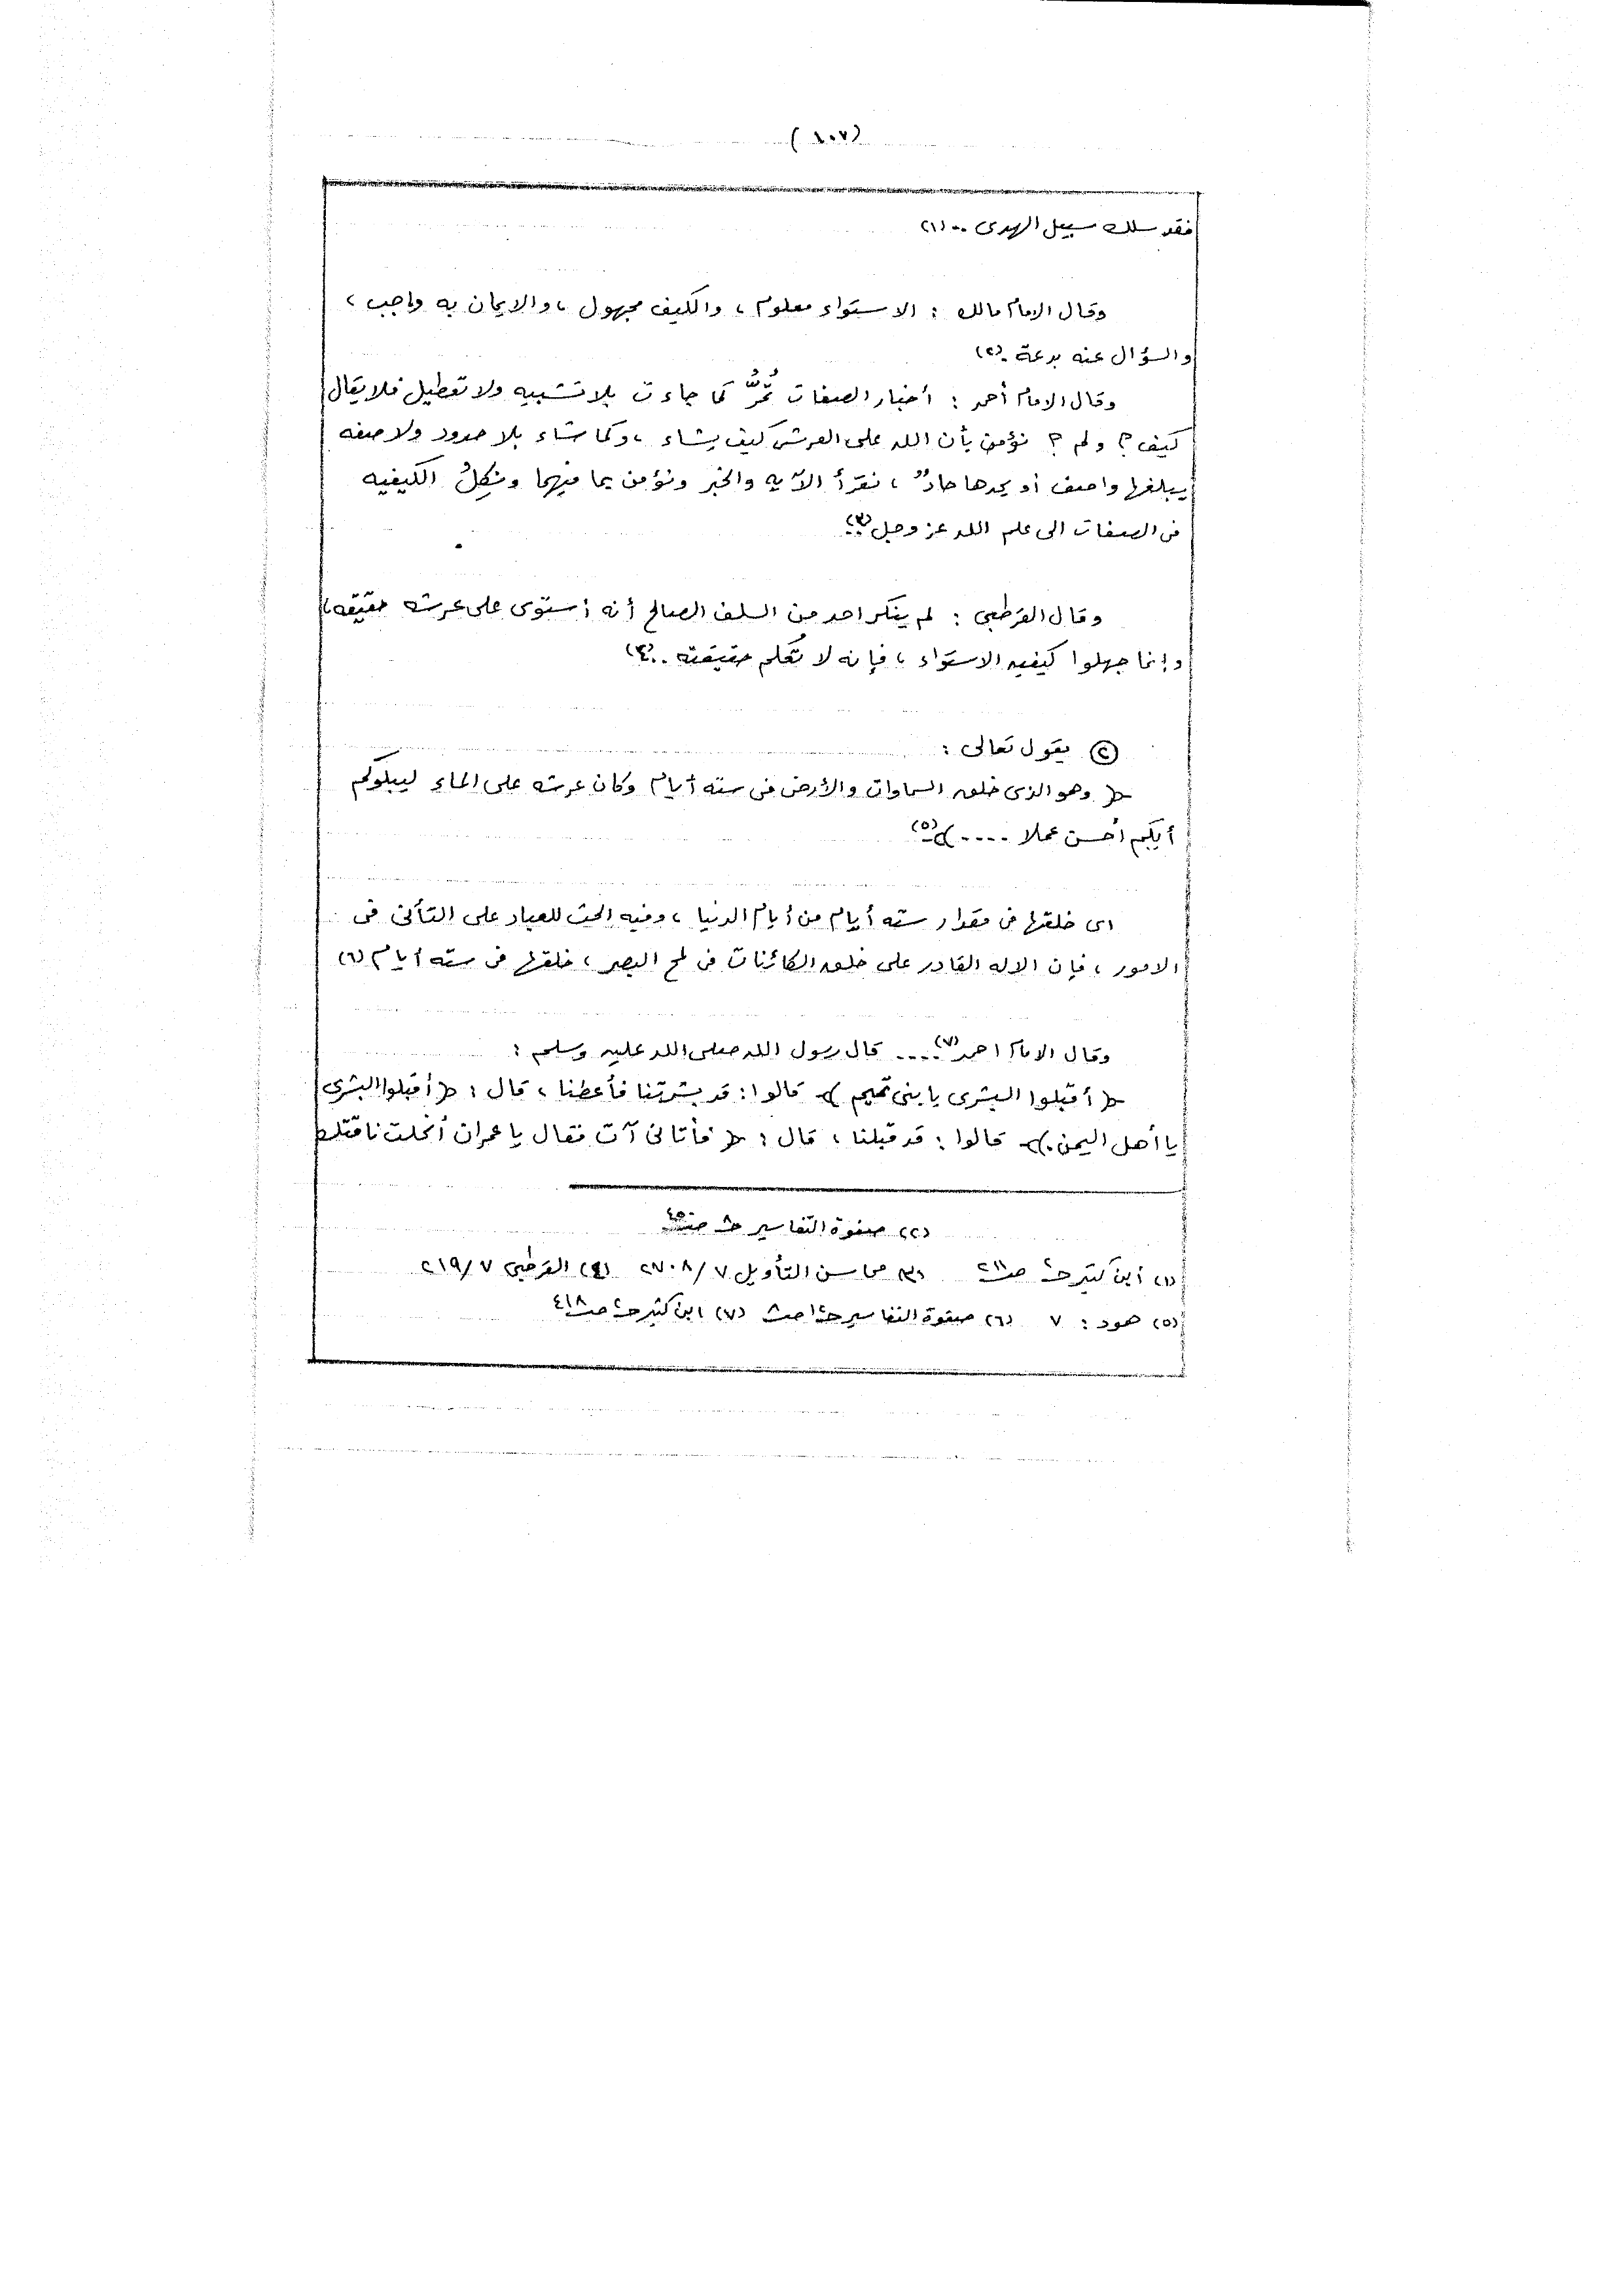 (١٠٧)
فقد سلك سبيل الهدى ..(١)
وقال الامام مالك : الاستواء معلوم ، والكيف مجهول ، والايمان به واجب ،
والسؤال عنه بدعة .(٢)
وقال الامام أحمد : أخبار الصفات تُمَرُّ كما جاءت بلا تشبيه ولا تعطيل فلا يقال
كيف ؟ ولم ؟ نؤمن بأن الله على العرش كيف يشاء ، وكما شاء بلا حدود ولا صفه
يبلغها واصف أو يحدها حادٌ ، نقرأ الآيه والخبر ونؤمن بما فيهما ونكِلُ الكيفيه
فى الصفات الى علم الله عز وجل (٣)
وقال القرطبى : لم ينكر احد من السلف الصالح أنه إستوى على عرشه حقيقه ،
وإنما جهلوا كيفيه الاستواء ، فإنه لا تُعلم حقيقته ..(٤)
(٢) يقول تعالى :
﴿ وهو الذى خلق السماوات والأرض فى سته أيام وكان عرشه على الماء ليبلوكم
أيكم أحسن عملا ....﴾(٥)
اى خلقها فى مقدار سته أيام من أيام الدنيا ، وفيه الحث للعباد على التأنى فى
الامور ، فإن الاله القادر على خلق الكائنات فى لمح البصر ، خلقها فى سته أيام (٦)
وقال الامام احمد(٧) .... قال رسول الله صلى الله عليه وسلم :
﴿ أقبلوا البشرى يا بنى تميم ﴾ قالوا : قد بشرتنا فأعطنا ، قال : ﴿ أقبلوا البشرى
يا أهل اليمن .﴾ قالوا : قد قبلنا ، قال : ﴿ فأتانى آت فقال يا عمران أنحلت ناقتك
(٢) صفوة التفاسير
(١) أبن كثير (٣) محاسن التأويل ٧/ ٢٧٠٨ (٤) القرطبى ٧/ ٢١٩
(٥) هود : ٧ (٦) صفوة التفاسير (٧) ابن كثير